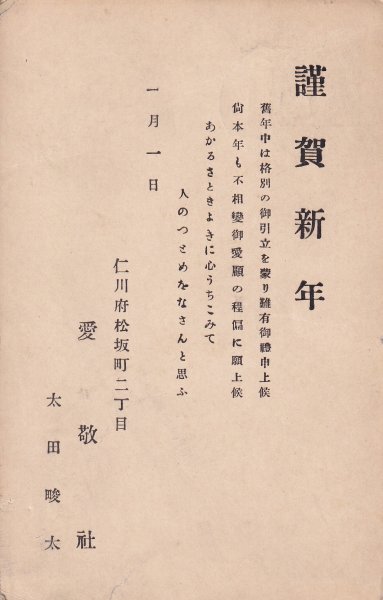 謹賀新年
舊年中は格別の御引立を蒙り難有御禮申上候
尙本年も不相變御愛顧の程偏に願上候
あかるさときよきに心うちこみて
人のつとめをなさんと思ふ
一月一日
仁川府松坂町二丁目
愛敬社
太田畯太